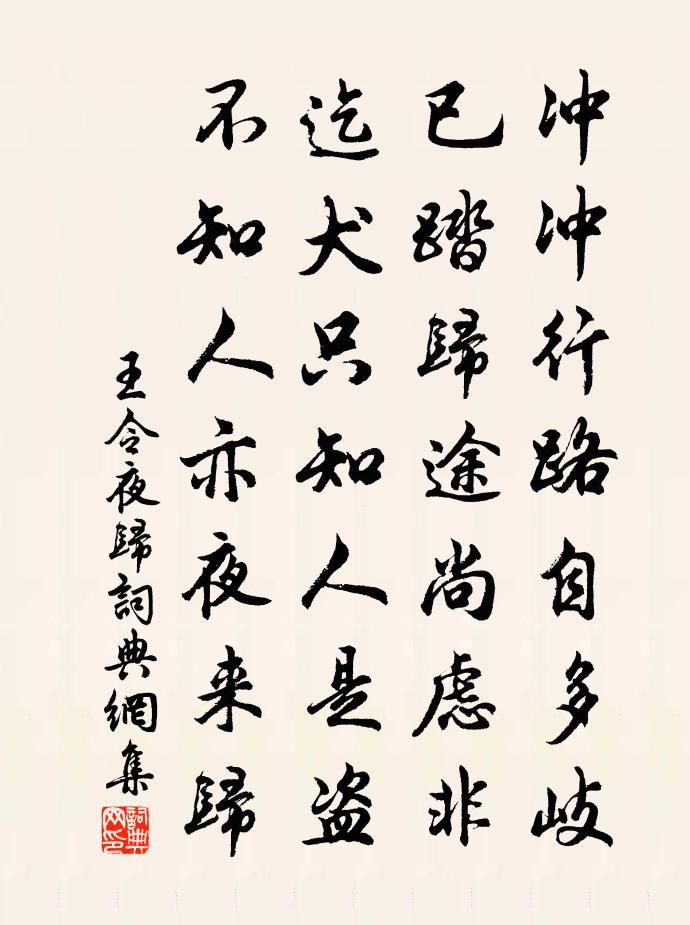 冲冲行路自多岐
已踏歸途尚虑非
迄犬只知人是盗
不知人亦夜来歸
王令夜歸詞典網集
詞典網印